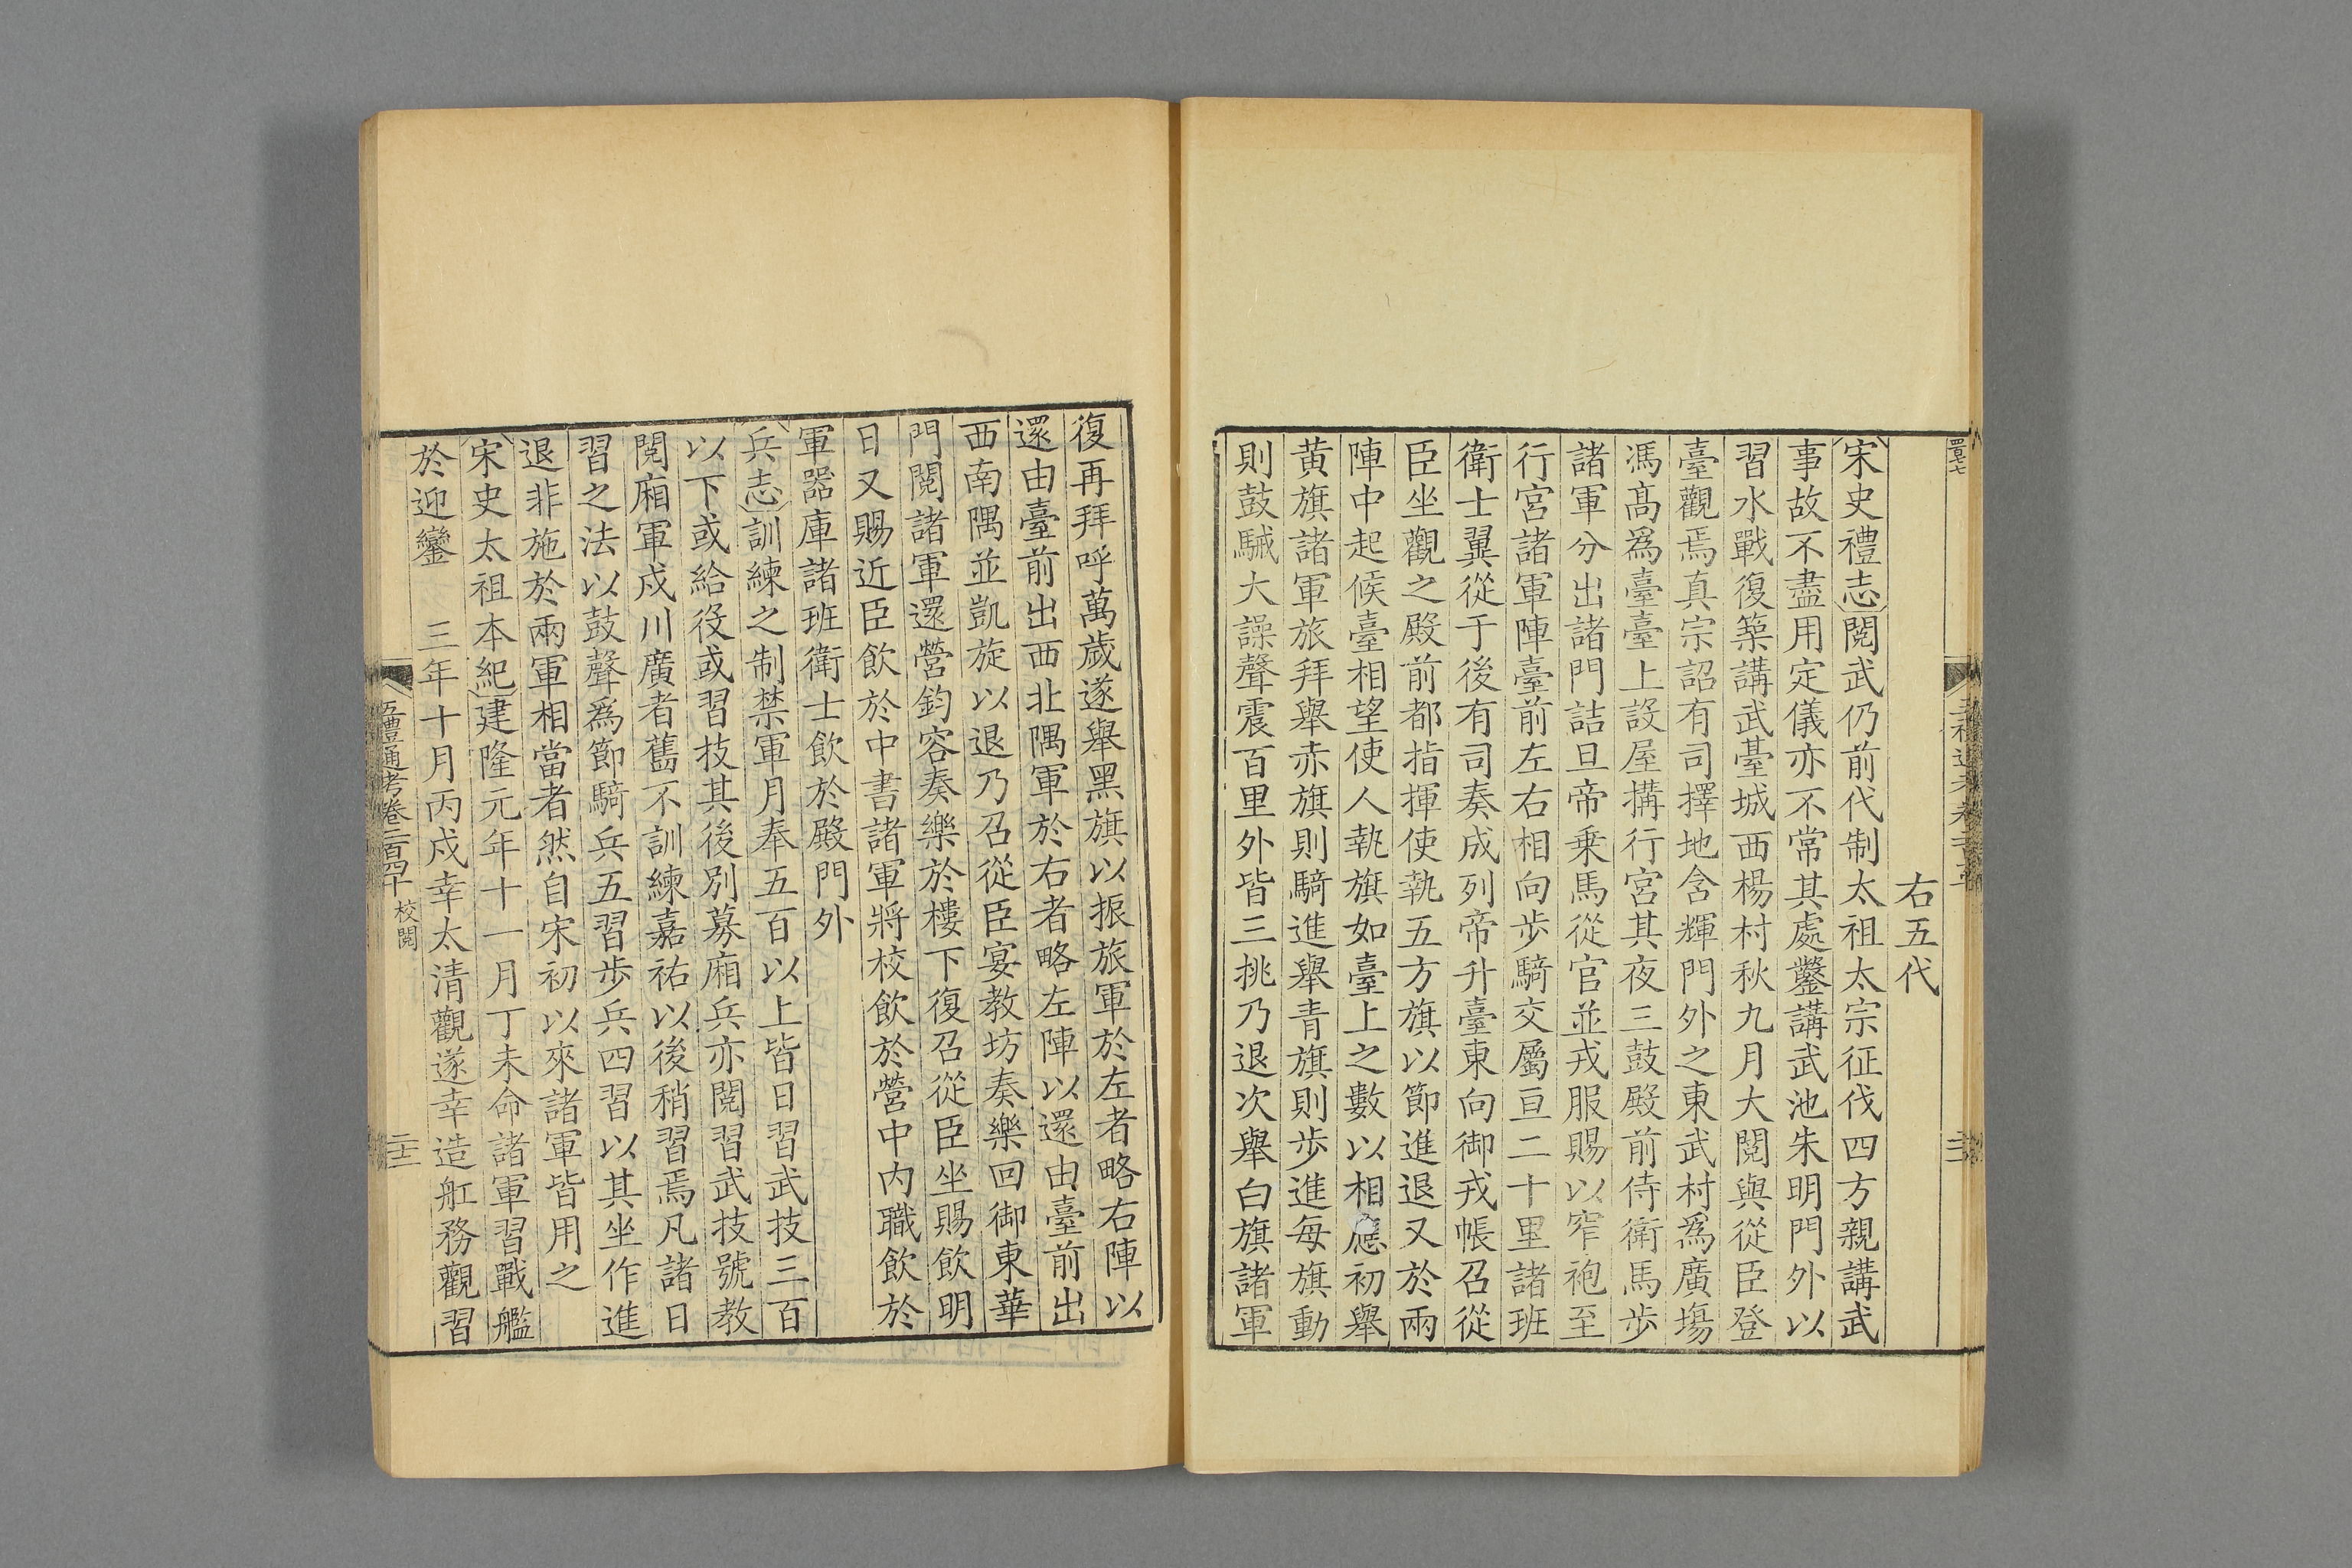 右五代
宋史禮志閱武仍前代制太祖太宗征伐四方親講武
事故不盡用定儀亦不常其處鑿講武池朱明門外以
習水戰復築講武臺城西楊村秋九月大閱與從臣登
臺觀焉真宗詔有司擇地含輝門外之東武村爲廣塲
馮高爲臺臺上設屋搆行宮其夜三鼓殿前侍衛馬步
諸軍分出諸門詰旦帝乗馬從官並戎服賜以窄袍至
行宮諸軍陣臺前左右相向步騎交屬亘二十里諸班
衛士翼從于後有司奏成列帝升臺東向御戎帳召從
臣坐觀之殿前都指揮使執五方旗以節進退又於兩
陣中起候臺相望使人執旗如臺上之數以相應初舉
黃旗諸軍旅拜舉赤旗則騎進舉青旗則步進每旗動
則鼓駴大譟聲震百里外皆三挑乃退次舉白旗諸軍
復再拜呼萬歲遂舉黑旗以振旅軍於左者略右陣以
還由臺前出西北隅軍於右者略左陣以還由臺前出
西南隅並凱旋以退乃召從臣宴教坊奏樂回御東華
門閱諸軍還營鈞容奏樂於樓下復召從臣坐賜飲明
日又賜近臣飲於中書諸軍將校飲於營中内職飲於
軍器庫諸班衛士飲於殿門外
兵志訓練之制禁軍月奉五百以上皆日習武技三百
以下或給役或習技其後別募廂兵亦閱習武技號教
閱廂軍戍川廣者舊不訓練嘉祐以後稍習焉凡諸日
習之法以鼓聲爲節騎兵五習步兵四習以其坐作進
退非施於兩軍相當者然自宋初以來諸軍皆用之
宋史太祖本紀建隆元年十一月丁未命諸軍習戰艦
於迎鑾　三年十月丙戌幸太清觀遂幸造舡務觀習
五禮通考卷二百四十 校閱 二十二